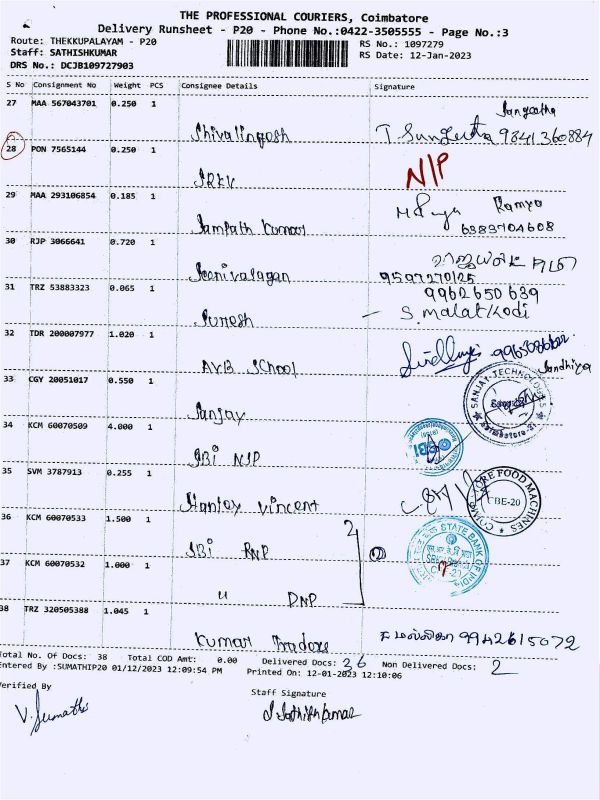 THE PROFESSIONAL COURIERS, Coimbatore
Delivery Runsheet - P20 - Phone No.:0422-3505555 - Page No.:3
Route: THEKKUPALAYAM - P20 RS No.: 1097279
Staff: SATHISHKUMAR RS Date: 12-Jan-2023
DRS No.: DCJB109727903
S No Consignment No Weight PCS Consignee Details Signature
27 MAA 567043701 0.250 1 Sangeetha
Shivalingesh T. Sangeetha 9841360884
28 PON 7565144 0.250 1
SRKV N/P
29 MAA 293106854 0.185 1 Ramya
Sampath Kumar 6383704608
30 RJP 3066641 0.720 1
9597270125
31 TRZ 53883323 0.065 1 9962650639
Suresh - S. Malatkodi
32 TDR 200007977 1.020 1
AVB School Sandhiya
33 CGY 20051017 0.550 1 SANJAY TECHNOLOGIES
Sanjay
34 KCM 60070509 4.000 1 SBI
SBI NIP
35 SVM 3787913 0.255 1 FOOD MACHINES
CBE-20
Stanley Vincent
36 KCM 60070533 1.500 1 2 STATE BANK OF INDIA
SBI RNP 2
37 KCM 60070532 1.000 1
" DNP
38 TRZ 320505388 1.045 1
Kumar Traders மல்லிகா 9942615072
Total No. Of Docs: 38 Total COD Amt: 0.00 Delivered Docs: 36 Non Delivered Docs: 2
Entered By :SUMATHIP20 01/12/2023 12:09:54 PM Printed On: 12-01-2023 12:10:06
Verified By Staff Signature
V. Sumathi S. Sathishkumar